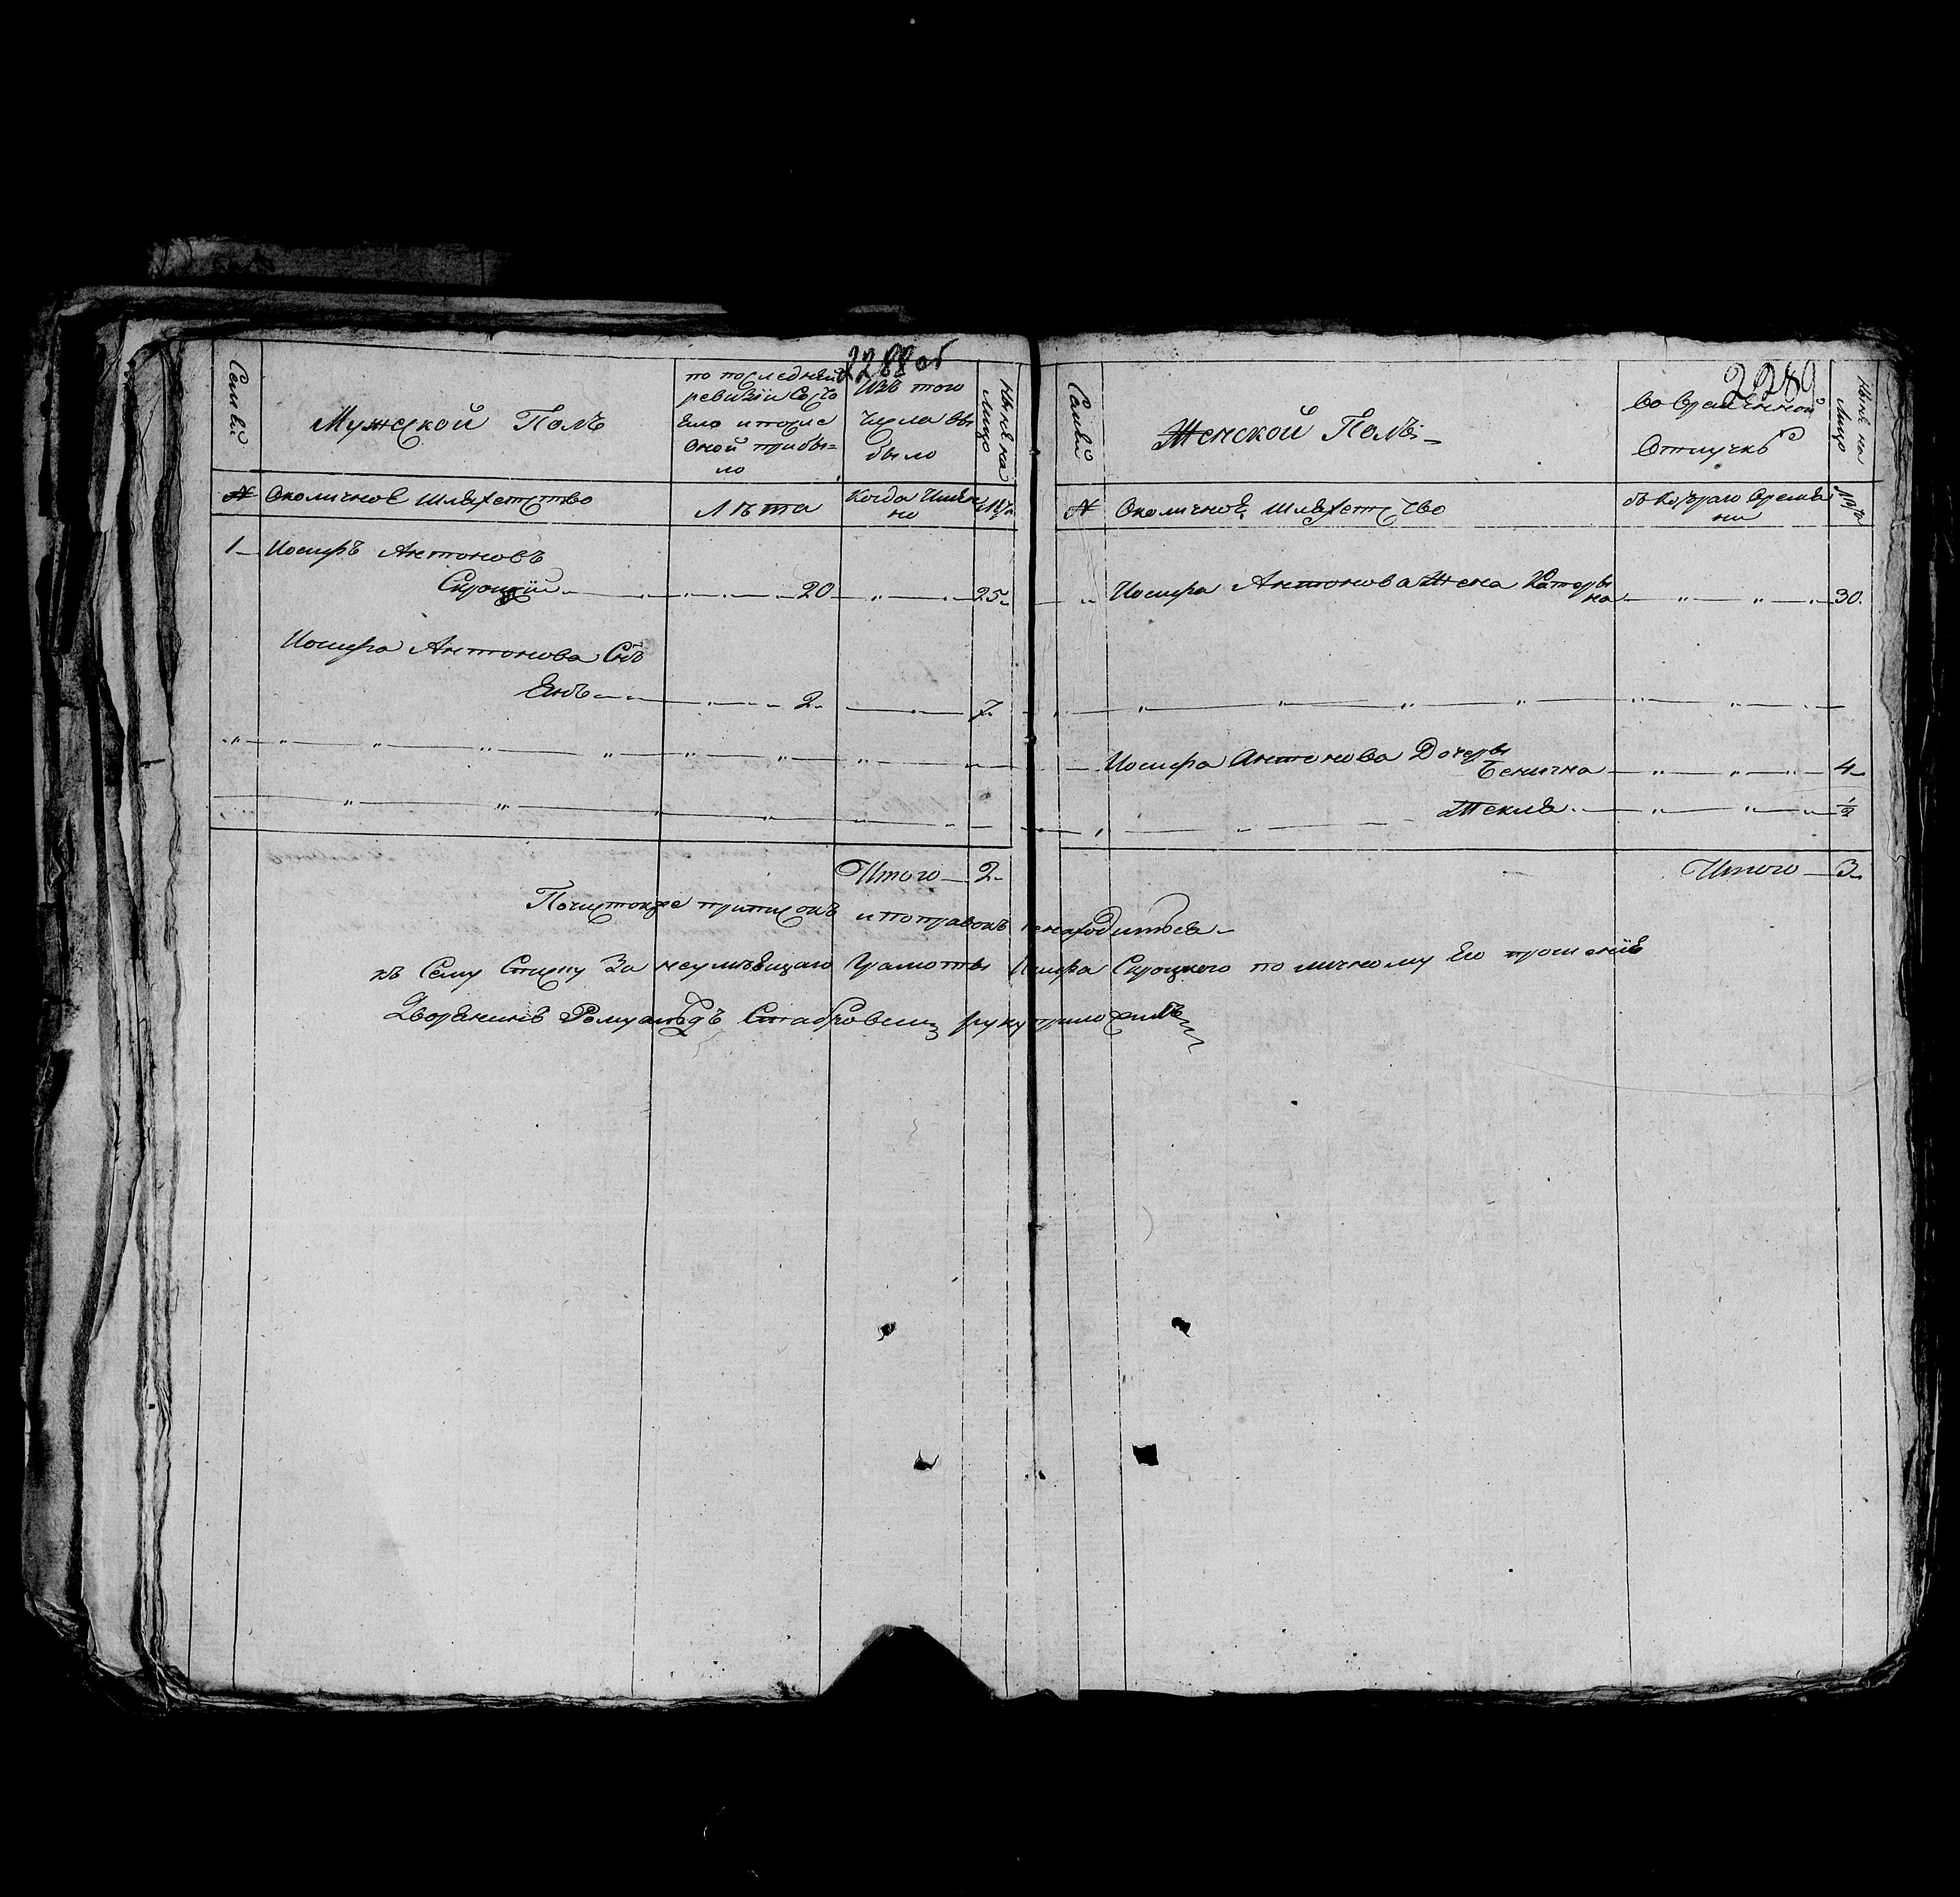 2288об
Семьи
Мужеской Полъ
по последней
ревизіи Состо
яло и после
оной прибы=
ло
Изъ того
числа вы
было
Ныне на
Лицо
№ Околичное шляхетство
Лѣта
Когда Имян
но
Лѣта
1 Иосифъ Антоновъ
20 25
Иосифа Антонова Снъ
2 7
Итого 2
2289
Семьи
Женской Полъ
Во временной
Отлучкѣ
Ныне на
Лицо
№ Околичное шляхетство
съ Котораго время
ни
Лѣта
Иосифа Антонова Жена Катеры
на 30
Иосифа Антонова Дочеры
4
Текля ½
Итого 3
почистокъ приписокъ и поправокъ ненаходиться
къ Сему Списку За неумеющаго Грамоты Иосифа по личному Его прошенію
Дворянинъ Ромуальдъ руку приложилъ